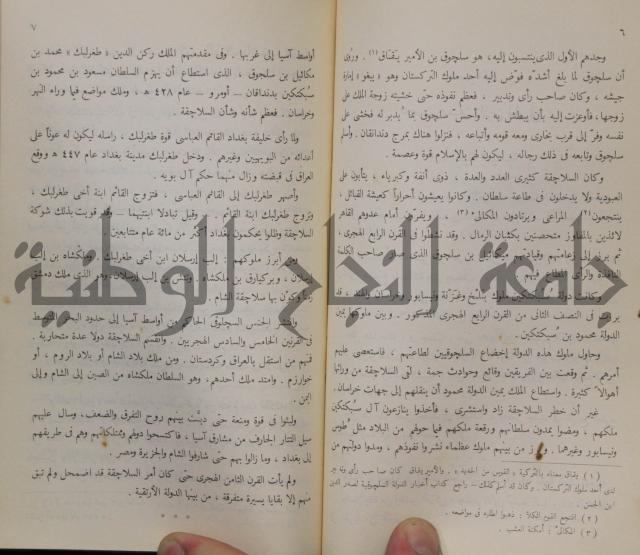 ٦
وجدهم الأول الذى ينتسبون إليه، هو سلجوق بن الأمير يقاق(١). ورُوى
أن سلجوق لما بلغ أشده فوّض إليه أحد ملوك التركستان وهو « يبغو » إمارة
جيشه ، وكان صاحب رأى وتدبير . فعظم نفوذه حتى خشيته زوجة الملك على
زوجها، فأوعزت إليه بأن يبطش به . وأحسّ سلجوق بما يُدبر له فخشى على
نفسه وفرّ إلى قرب بخارى ومعه قومه وأتباعه ، فنزلوا هناك بمرج دندانقان . وأسلم
سلجوق وتابعه فى ذلك رجاله ، ليكون لهم بالإسلام قوة وعصمة .
وكان السلاجقة كثيرى العدد والعدة ، ذوى أنفة وكبرياء ، يتأبون على
العبودية ولا يدخلون فى طاعة سلطان . وكانوا يعيشون أحراراً كعيشة القبائل ،
ينتجعون(٢) المراعى ويرتادون المكالئ(٣) ، ويفرّون أمام عدوهم القاهر
لائذين بالمفاوز متحصنين بكثبان الرمال . وقد نشطوا فى القرن الرابع الهجرى ،
ثم برز إلى زعامتهم وقيادتهم ميكائيل بن سلجوق الذى صار صاحب الكلمة
النافذة والرأى المطاع فيهم .
وكانت دولة سُبكتكين ملوك ببلخ وغزنة ونيسابور وخراسان والهند ، قد
برزت فى النصف الثانى من القرن الرابع الهجرى المذكور . وبين ملوكها يمين
الدولة محمود بن سُبكتكين .
وحاول ملوك هذه الدولة إخضاع السلجوقيين لطاعتهم ، فاستعصى عليهم
أمرهم . ثم وقعت بين الفريقين وقائع وحوادث جمة ، لقى السلاجقة من ورائها
أهوالاً كثيرة . واستطاع الملك يمين الدولة محمود أن ينقلهم إلى جهات خراسان .
غير أن خطر السلاجقة زاد واستشرى ، فأخذوا ينازعون آل سُبكتكين
ملكهم ، ومضوا يمدون سلطانهم ورقعة ملكهم فيما حولهم من البلاد مثل طوس
ونيسابور وغيرهما . وبرز من بينهم ملوك عظماء نشروا نفوذهم ، ومدوا دولتهم من
(١) يقاق معناه بالتركية « القوس من الحديد » . والأمير يقاق كان صاحب رأى وتدبير
لدى أحد ملوك التركستان . وكان قد أسلم كذلك – راجع كتاب أخبار الدولة السلجوقية لصدر الدين
ابن الحسن .
(٢) انتجع القوم الكلأ : ذهبوا لطلبه فى مواضعه .
(٣) المكالئ : أمكنة العشب .
٧
أواسط آسيا إلى غربيها . وفى مقدمتهم الملك ركن الدين « طغرلبك » محمد بن
مكائيل بن سلجوق ، الذى استطاع أن يهزم السلطان مسعود بن محمود بن
سُبكتكين بدندانقان – أومرو – عام ٤٢٨ ﻫ ، وملك مواضع فيما وراء النهر
وخراسان . فعظم شأنه وشأن السلاجقة .
ولما رأى خليفة بغداد القائم العباسى قوة طغرلبك ، راسله ليكون له عوناً على
أعدائه من البويهيين وغيرهم . ودخل طغرلبك مدينة بغداد عام ٤٤٧ ﻫ ووقع
العراق فى قبضته وزال منها حكم آل بويه .
وأصهر طغرلبك إلى القائم العباسى ، فتزوج القائم ابنة أخى طغرلبك ،
وتزوج طغرلبك ابنة القائم . – وقيل تبادلا ابنتيهما – وقد قويت بذلك شوكة
السلاجقة وظلوا يحكمون بغداد أكثر من مائة عام متتابعين
ومن أبرز ملوكهم : إلب إرسلان ابن أخى طغرلبك . وملكشاه بن إلب
إرسلان ، وبركيارق بن ملكشاه . وتتش بن إلب إرسلان وهو الذى ملك دمشق
زمناً وكوّن بها سلاجقة الشام .
وانتشر الجنس السلجوقى الحاكم من أواسط آسيا إلى حدود البحر المتوسط
فى القرنين الخامس والسادس الهجريين . وانقسم السلاجقة دولا عدة متحاربة .
فمنهم من استقل بالعراق وكردستان . ومن ملك بلاد الشام أو بلاد الروم ، أو
خوارزم . وامتد ملك أحدهم، وهو السلطان ملكشاه من الصين إلى الشام وإلى
اليمن .
ولبثوا فى قوة ومنعة حتى دبّت بينهم روح التفرق والضعف، وسال عليهم
سيل التتار الجارف من مشارق آسيا ، فاكتسحوا دولهم وممتلكاتهم وهم فى طريقهم
إلى بغداد ، وما زالوا بهم حتى شارفوا الشام والجزيرة ومصر .
ولم يأت القرن الثامن الهجرى حتى كان أمر السلاجقة قد اضمحل ولم تبق
منهم إلا بقايا يسيرة متفرقة ، من بينها الدولة الأرتقية .
* * *
جامعة النجاح الوطنية